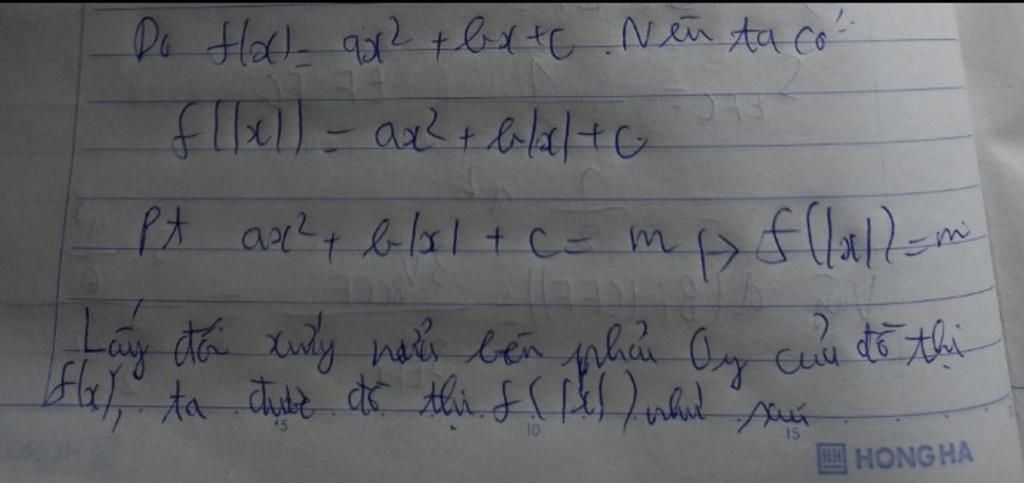 Do f(x) = ax² + bx + c. Nên ta có:
f(|x|) = ax² + b|x| + c
Pt ax² + b|x| + c = m <=> f(|x|) = m
Lấy đối xứng nửa bên phải Oy của đồ thị
f(x), ta được đồ thị f(|x|) như sau
5 10 15
HH HONG HA